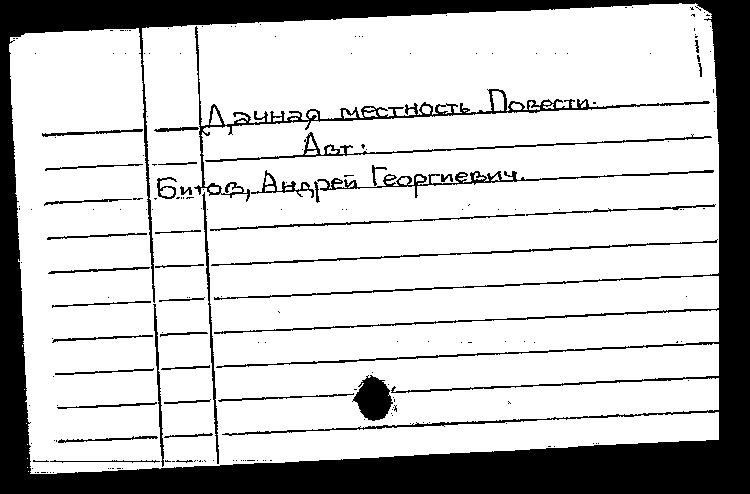 Дачная местность. Повести.
Авт.:
Битов, Андрей Георгиевич.